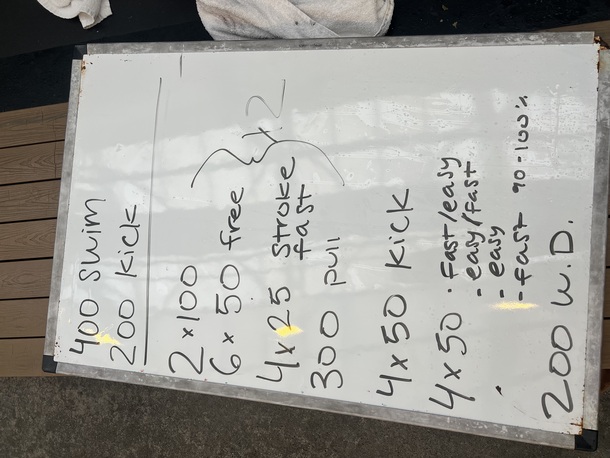 400 swim
200 kick
2 x 100
6 x 50 free
4 x 25 stroke
fast
300 pull
x 2
4 x 50 kick
4 x 50 · fast/easy
- easy/fast
- easy
- fast 90-100%
200 W.D.